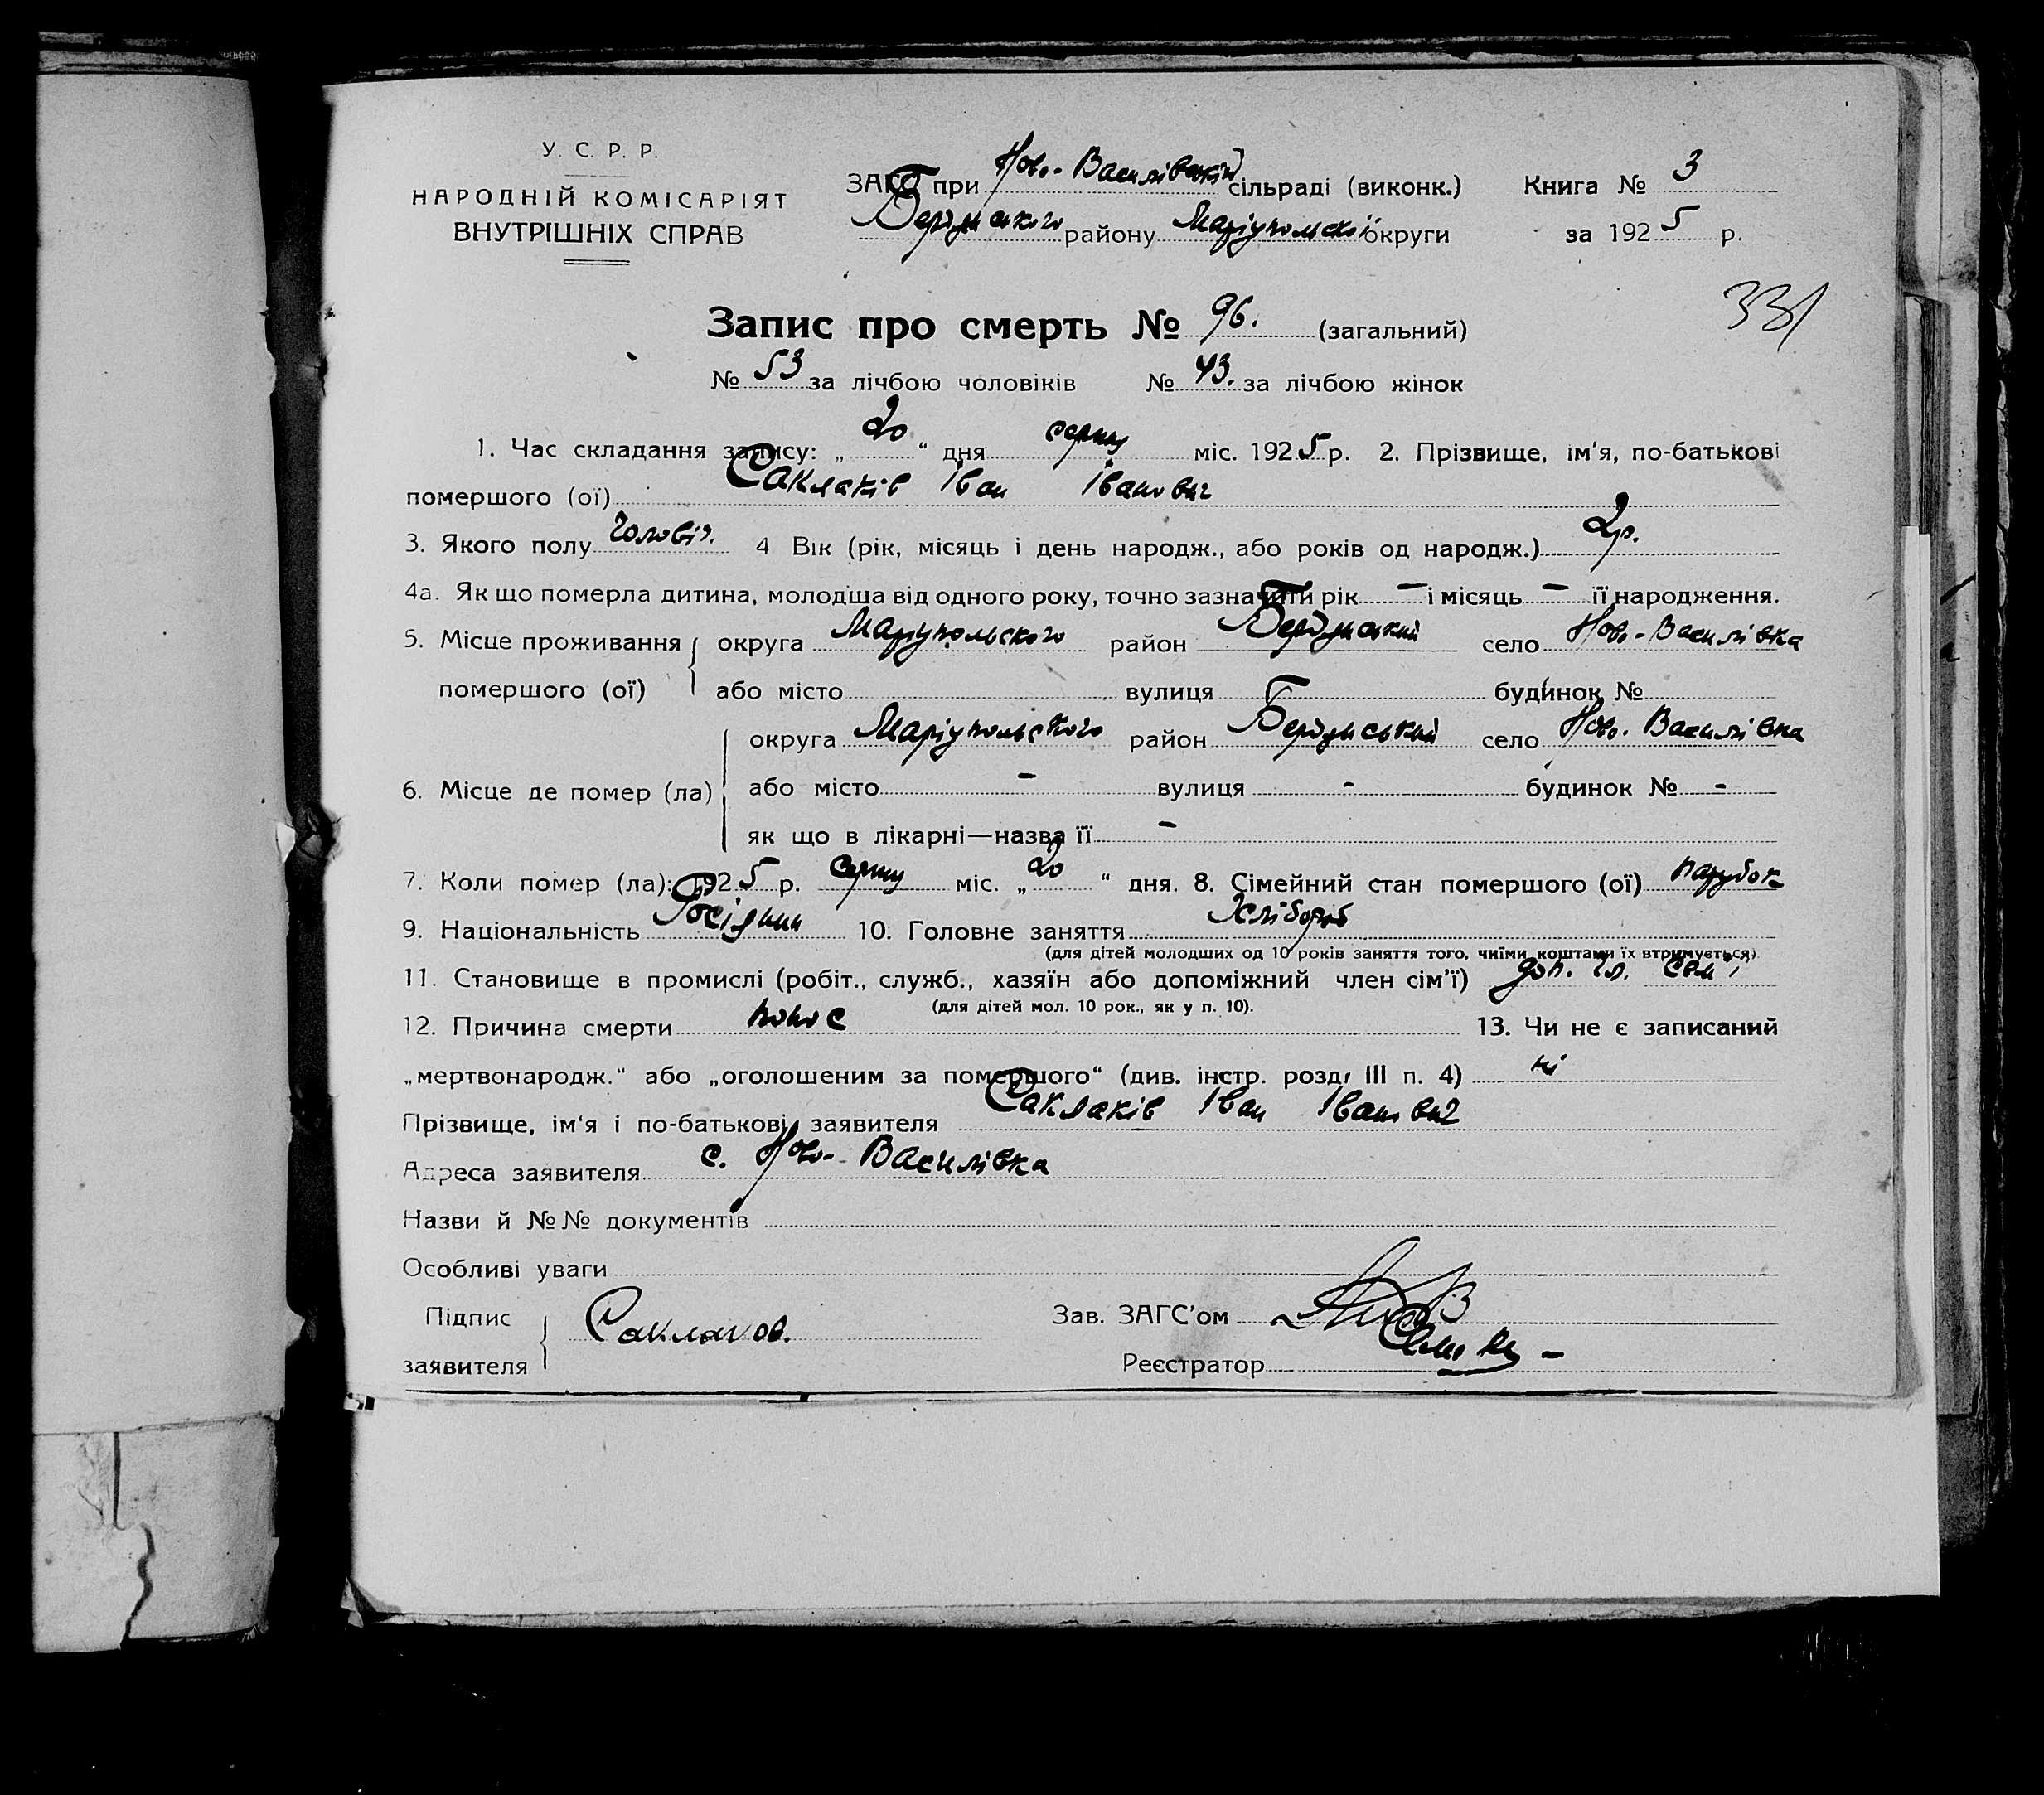 У. С. Р. Р.
НАРОДНІЙ КОМІСАРІЯТ
ВНУТРІШНІХ СПРАВ
ЗАГС при Ново-Василівській сільраді (виконк.)
Бердянського району Маріупольскої округи
Книга № 3
за 1925 р.
331
Запис про смерть № 96. (загальний)
№ 53 за лічбою чоловіків № 43. за лічбою жінок
1. Час складання запису: „20“ дня серпня міс. 1925 р. 2. Прізвище, ім'я, по-батькові
помершого (ої) Саклаків Іван Іванович
3. Якого полу чоловіч. 4 Вік (рік, місяць і день народж., або років од народж.) 2р.
4а. Як що померла дитина, молодша від одного року, точно зазначити рік – і місяць – її народження.
5. Місце проживання округа Маріупольского район Бердянський село Ново-Василівка
помершого (ої) або місто вулиця будинок №
округа Маріупольського район Бердянський село Ново-Василівка
6. Місце де помер (ла) або місто - вулиця - будинок № -
як що в лікарні—назва її -
7. Коли помер (ла): 1925 р. серпня міс. „20“ дня. 8. Сімейний стан помершого (ої) парубок
9. Національність Росіянин 10. Головне заняття Хлібороб
(для дітей молодших од 10 років заняття того, чиїми коштами їх втримується)
11. Становище в промислі (робіт., служб., хазяїн або допоміжний член сім'ї) доп. чл. сем'ї
(для дітей мол. 10 рок., як у п. 10).
12. Причина смерти понос 13. Чи не є записаний
„мертвонародж.“ або „оголошеним за помершого“ (див. інстр. розд. III п. 4) ні
Прізвище, ім'я і по-батькові заявителя Саклаків Іван Іванович
Адреса заявителя с. Ново-Василівка
Назви й №№ документів
Особливі уваги
Підпис
заявителя Саклаков.
Зав. ЗАГС'ом
Реєстратор